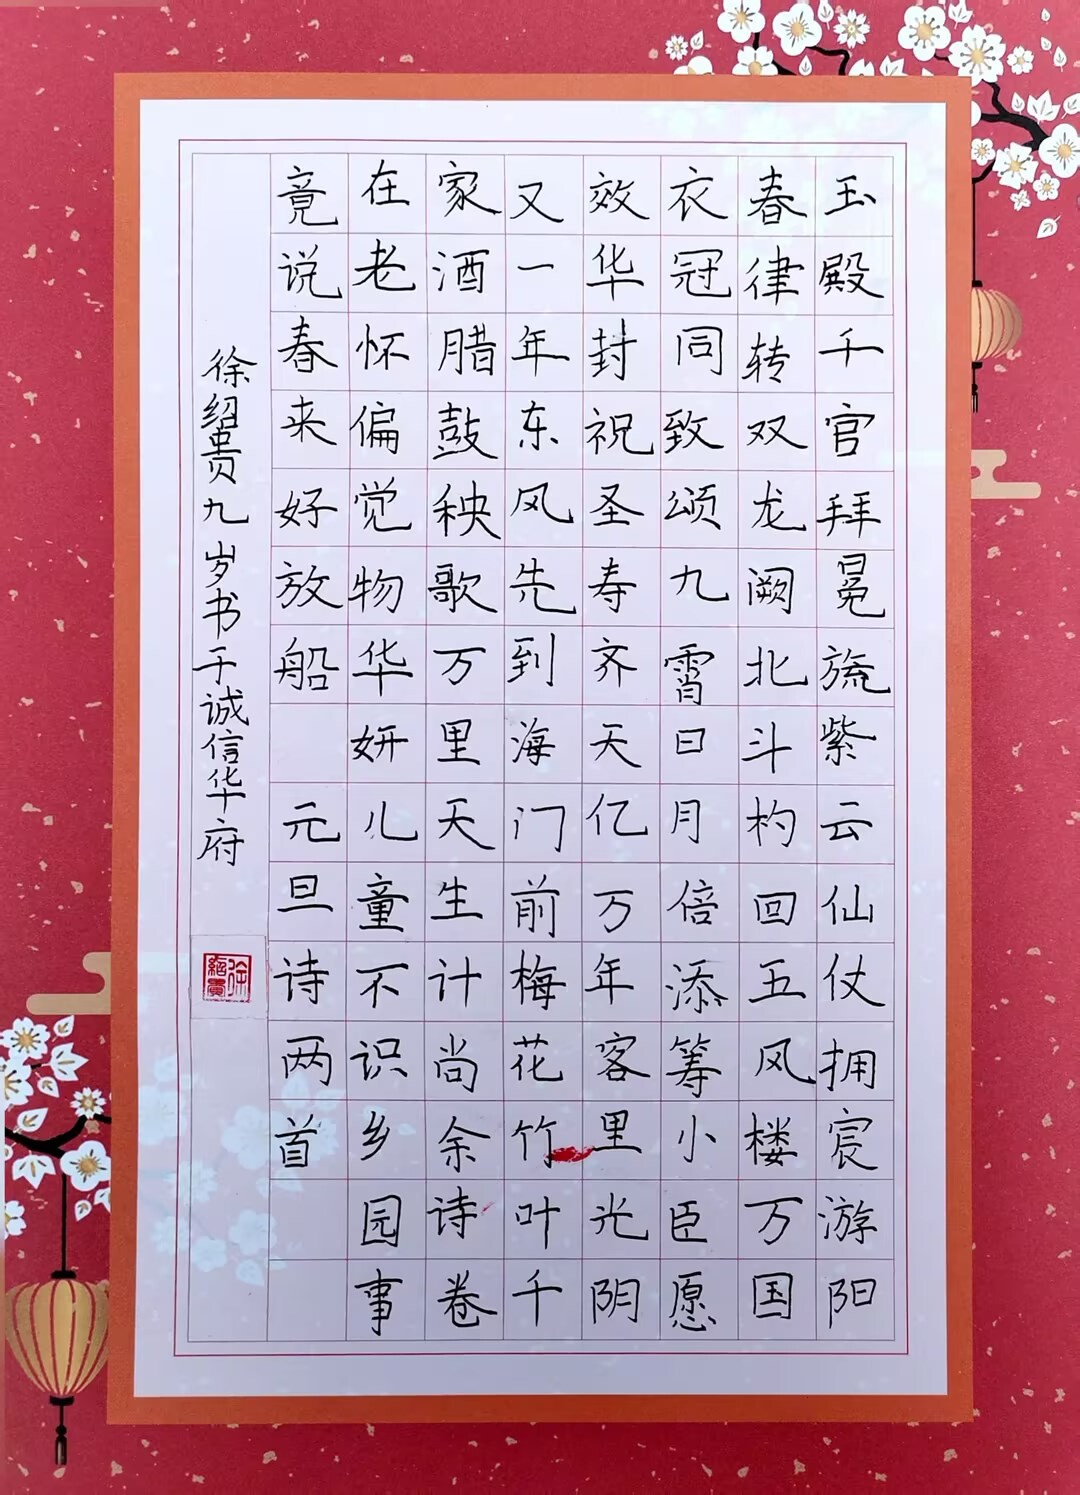 玉殿千官拜冕旒紫云仙仗拥宸游阳
春律转双龙阙北斗杓回五风楼万国
衣冠同致颂九霄日月倍添筹小臣愿
效华封祝圣寿齐天亿万年客里光阴
又一年东风先到海门前梅花竹叶千
家酒腊鼓秧歌万里天生计尚余诗卷
在老怀偏觉物华妍儿童不识乡园事
竟说春来好放船 元旦诗两首
徐绍贵九岁书于诚信华府
徐绍贵